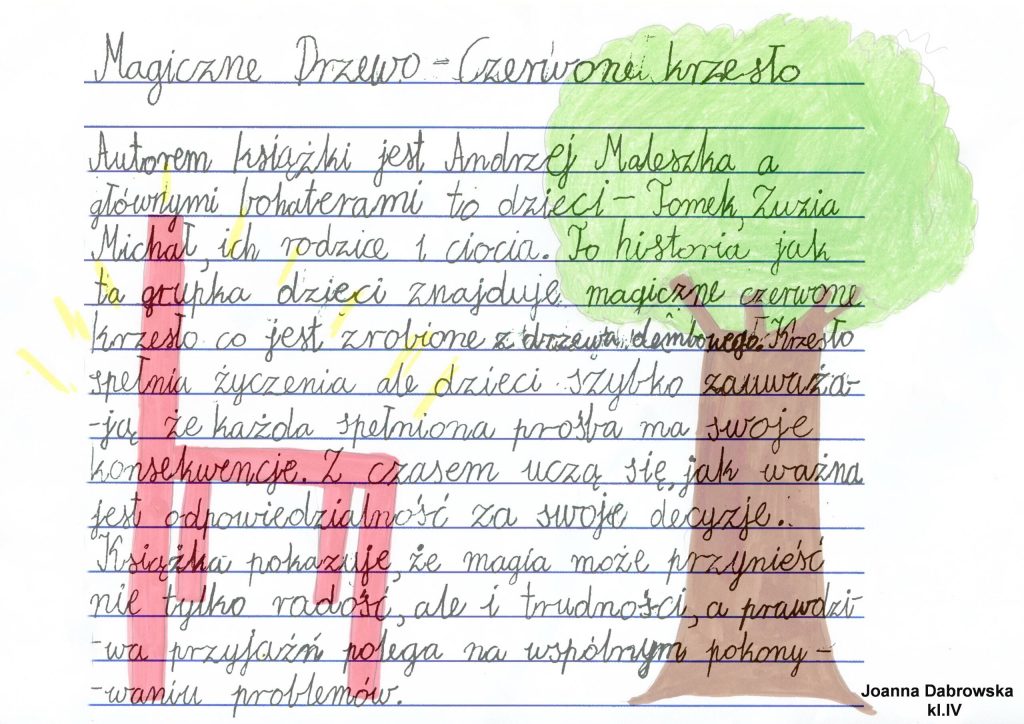 Magiczne Drzewo - Czerwone krzesło
Autorem książki jest Andrzej Maleszka a
głównymi bohaterami to dzieci - Tomek, Zuzia
Michał, ich rodzice i ciocia. To historia jak
ta grupka dzięci znajduje magiczne czerwone
krzesło co jest zrobione z drzewa dembowego. Krzesło
spełnia życzenia ale dzieci szybko zauważa-
-ją że każda spełniona prośba ma swoje
konsekwencje. Z czasem uczą się, jak ważna
jest odpowiedzialność za swoje decyzje.
Książka pokazuje, że magia może przynieść
nie tylko radość, ale i trudności, a prawdzi-
-wa przyjaźń polega na wspólnym pokony-
-waniu problemów.
Joanna Dabrowska
kl.IV